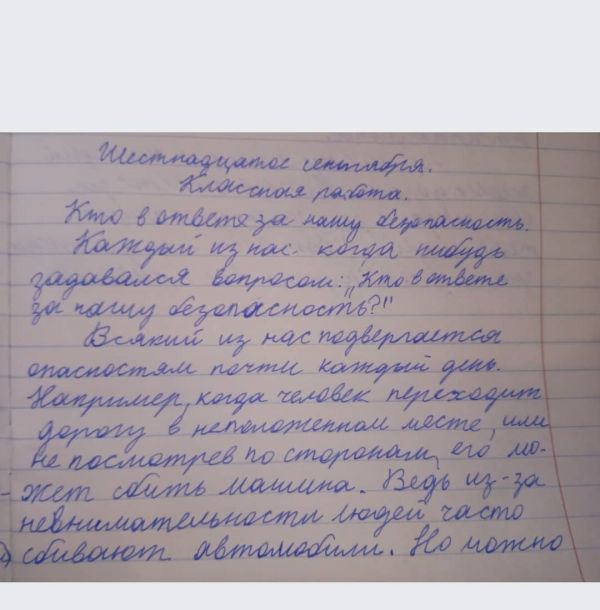 Шестнадцатое сентября.
Классная работа.
Кто в ответе за нашу безопасность.
Каждый из нас когда нибудь
задавался вопросом: "Кто в ответе
за нашу безопасность?"
Всякий из нас подвергается
опасностям почти каждый день.
Например, когда человек переходит
дорогу в неположенном месте, или
не посмотрев по сторонам, его мо-
жет сбить машина. Ведь из-за
невнимательности людей часто
сбивают автомобили. Но можно